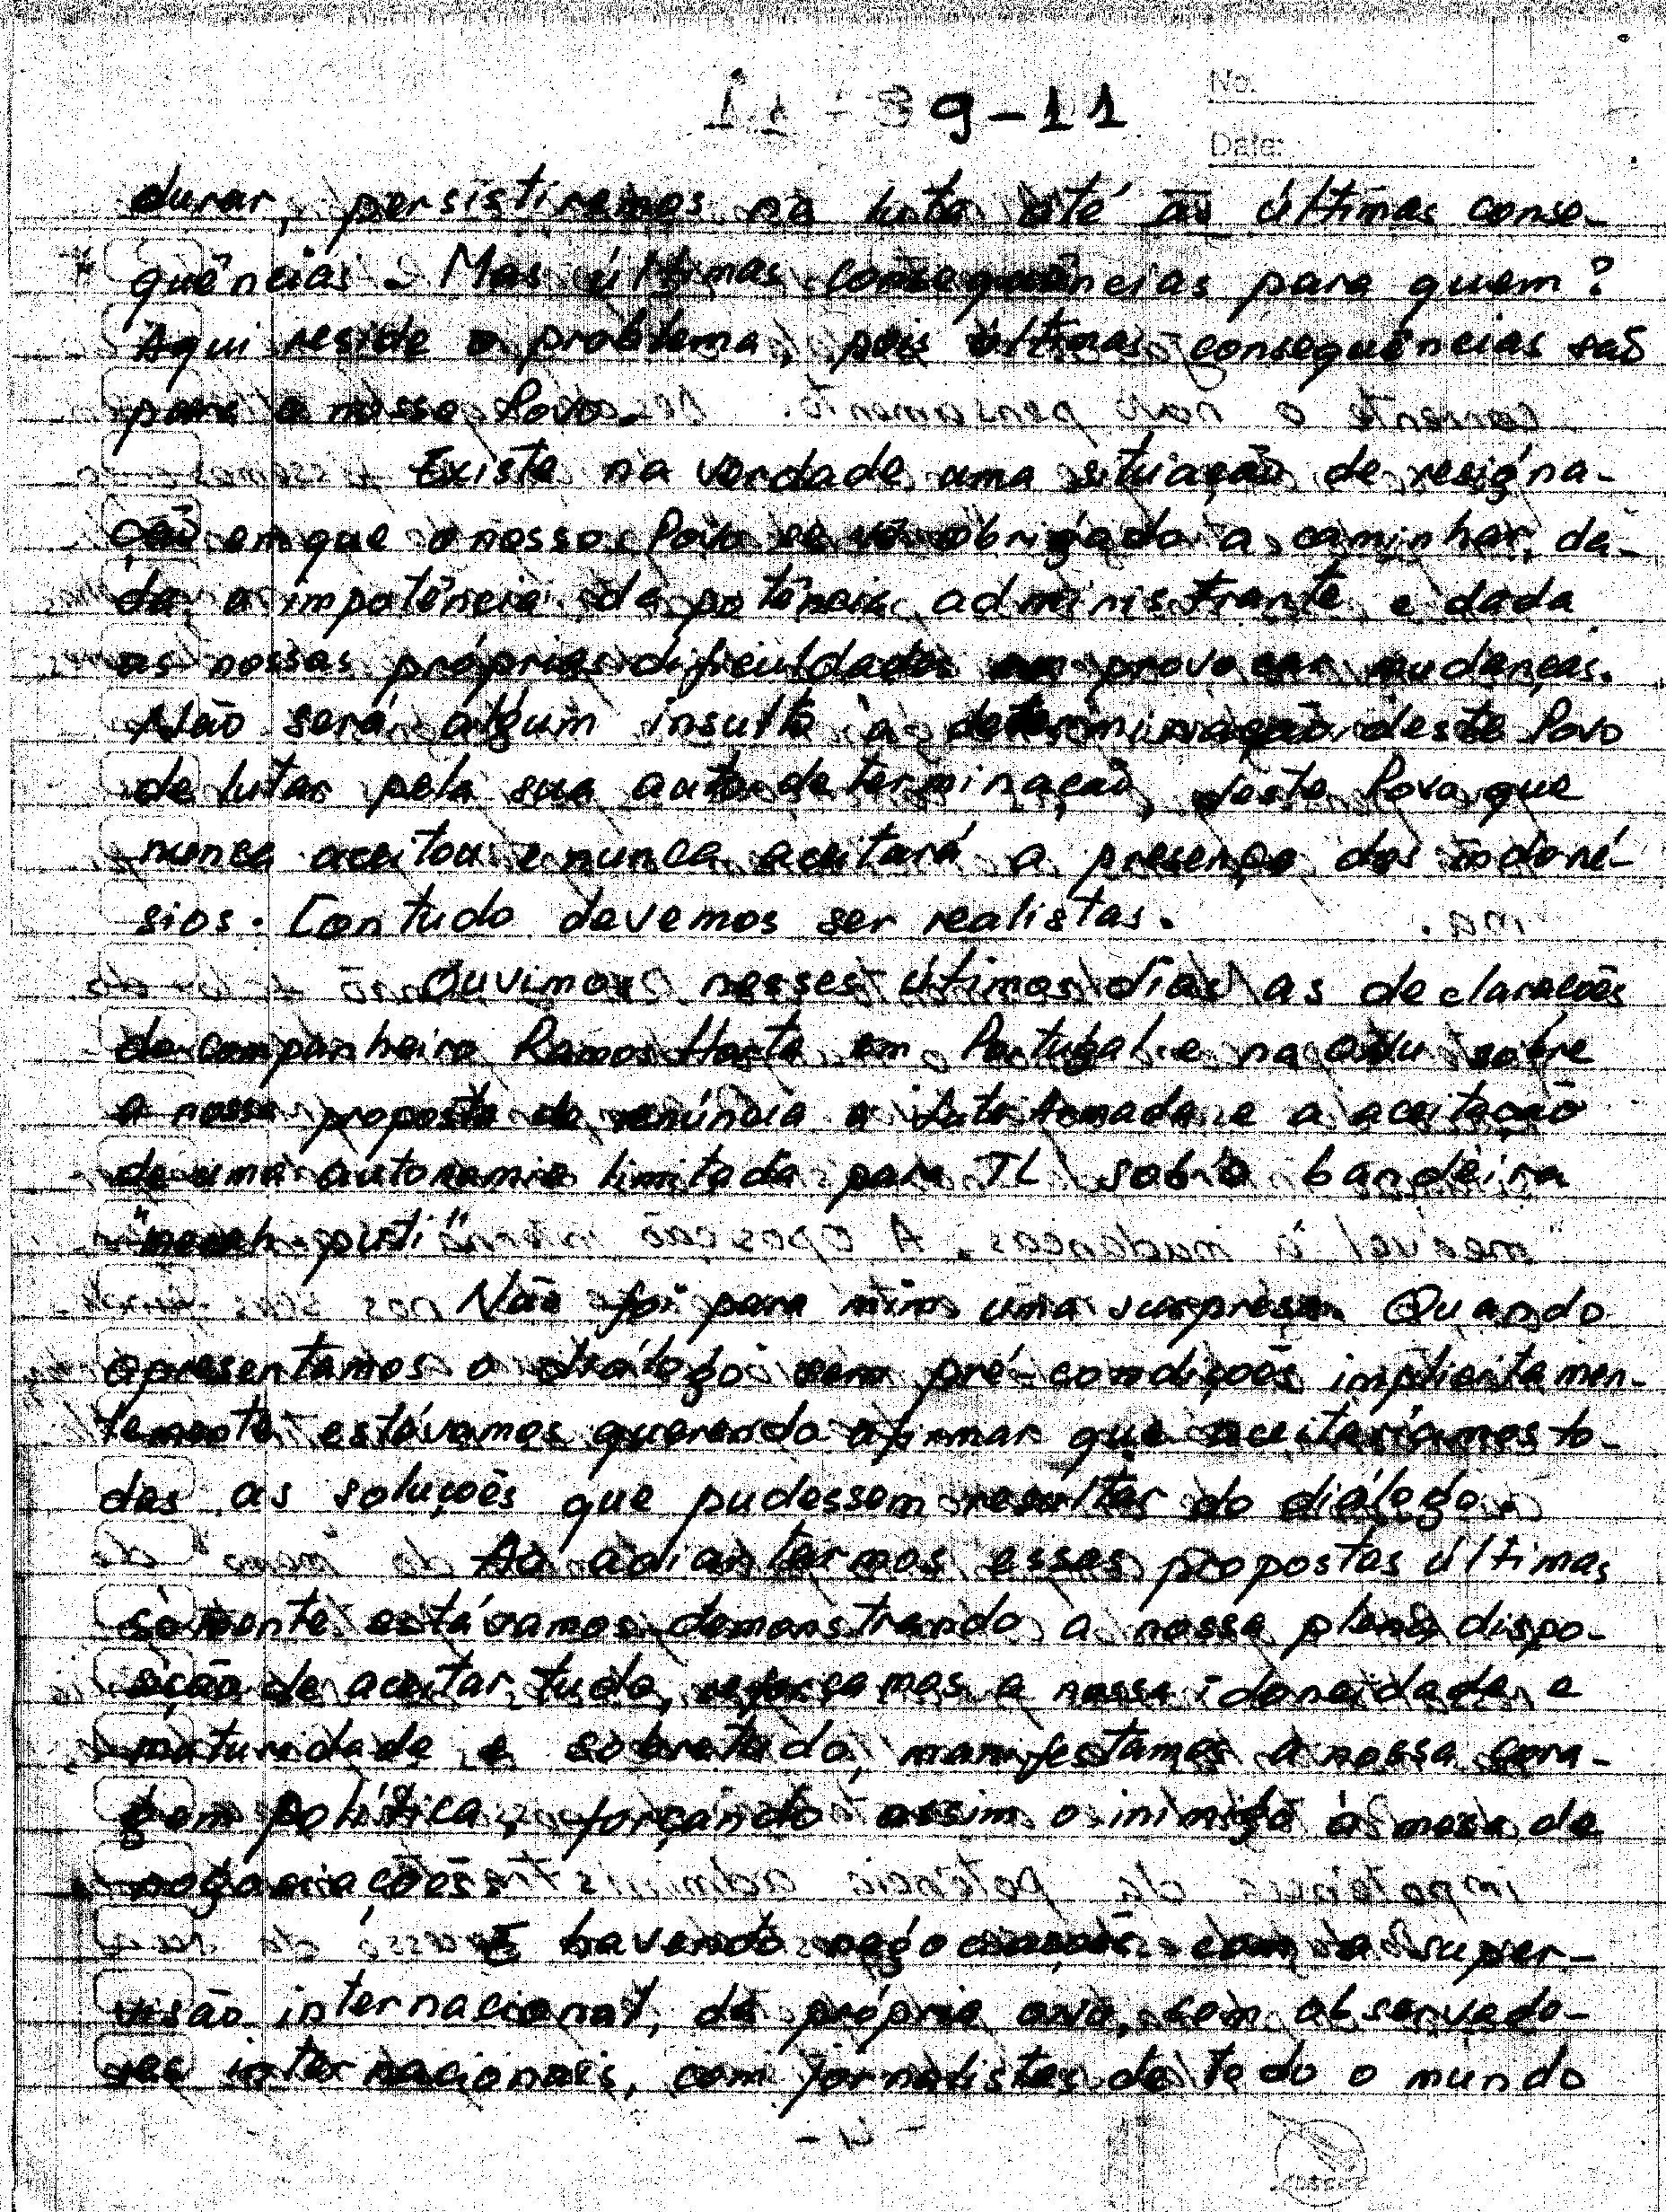 9-11
No.
Date:
durar, persistiremos na luta até às últimas conse-
quências. Mas últimas consequências para quem?
Aqui reside o problema, pois últimas consequências saõ
para o nosso Povo.
Existe na verdade uma situaçaõ de resigna-
çaõ em que o nosso Povo se vê obrigado a caminhar, da-
da a impotência da potência administrante e dada
as nossas próprias dificuldades em provocar mudanças.
Não será algum insulto à determinação deste Povo
de lutar pela sua auto-determinaçaõ, deste Povo que
nunca aceitou e nunca aceitará a presença dos indoné-
sios. Contudo devemos ser realistas.
Ouvimos nesses útimos dias as declaraçoẽs
do companheiro Ramos Horta em Portugal e na ONU sobre
a nossa proposta de renúncia a luta armada e a aceitação
de uma autonomia limitada para TL sob a bandeira
"merah-puti"
Não foi para mim uma surpresa. Quando
apresentamos o diálogo sem pré-condiçoẽs implicitamen-
temente estávamos querendo afirmar que aceitaríamos to-
das as soluçoẽs que pudessem resultar do diálogo.
Ao adiantarmos essas propostas últimas
sòmente estávamos demonstrando a nossa plena dispo-
siçaõ de aceitar tudo, reforçamos a nossa idoneidade e
maturidade e sobretudo, manifestamos a nossa cora-
gem política, forçando assim o inimigo à mesa de
negociaçoẽs
E havendo negociaçoẽs com a super-
visão internacional, da própria ONU, com observado-
res internacionais, com jornalistas de todo o mundo